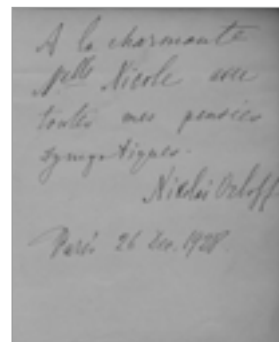 A la charmante
Melle Nicole avec
toutes mes pensées
sympatiques.
Nicolai Orloff
Paris 26 Dec. 1928.